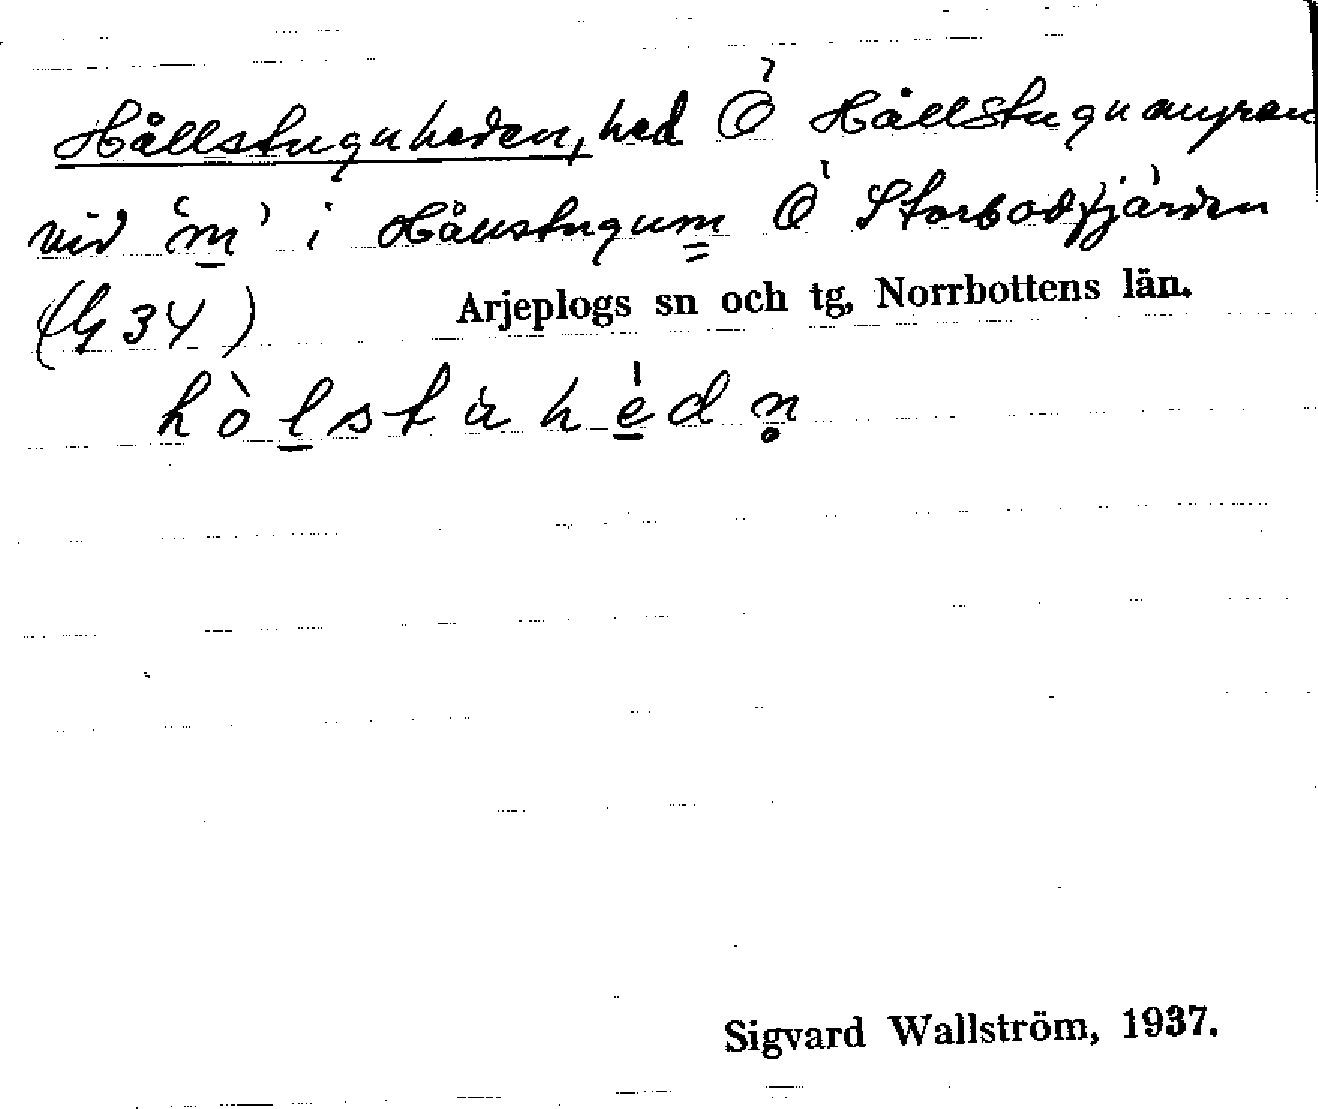 Hållstuguheden, hed Ö Hållstugumyran
vid 'm' i Hållstugum Ö Storbodfjärden
(G 34)
Arjeplogs sn och tg, Norrbottens län.
hòl̲stahe̲dn̥
Sigvard Wallström, 1937.